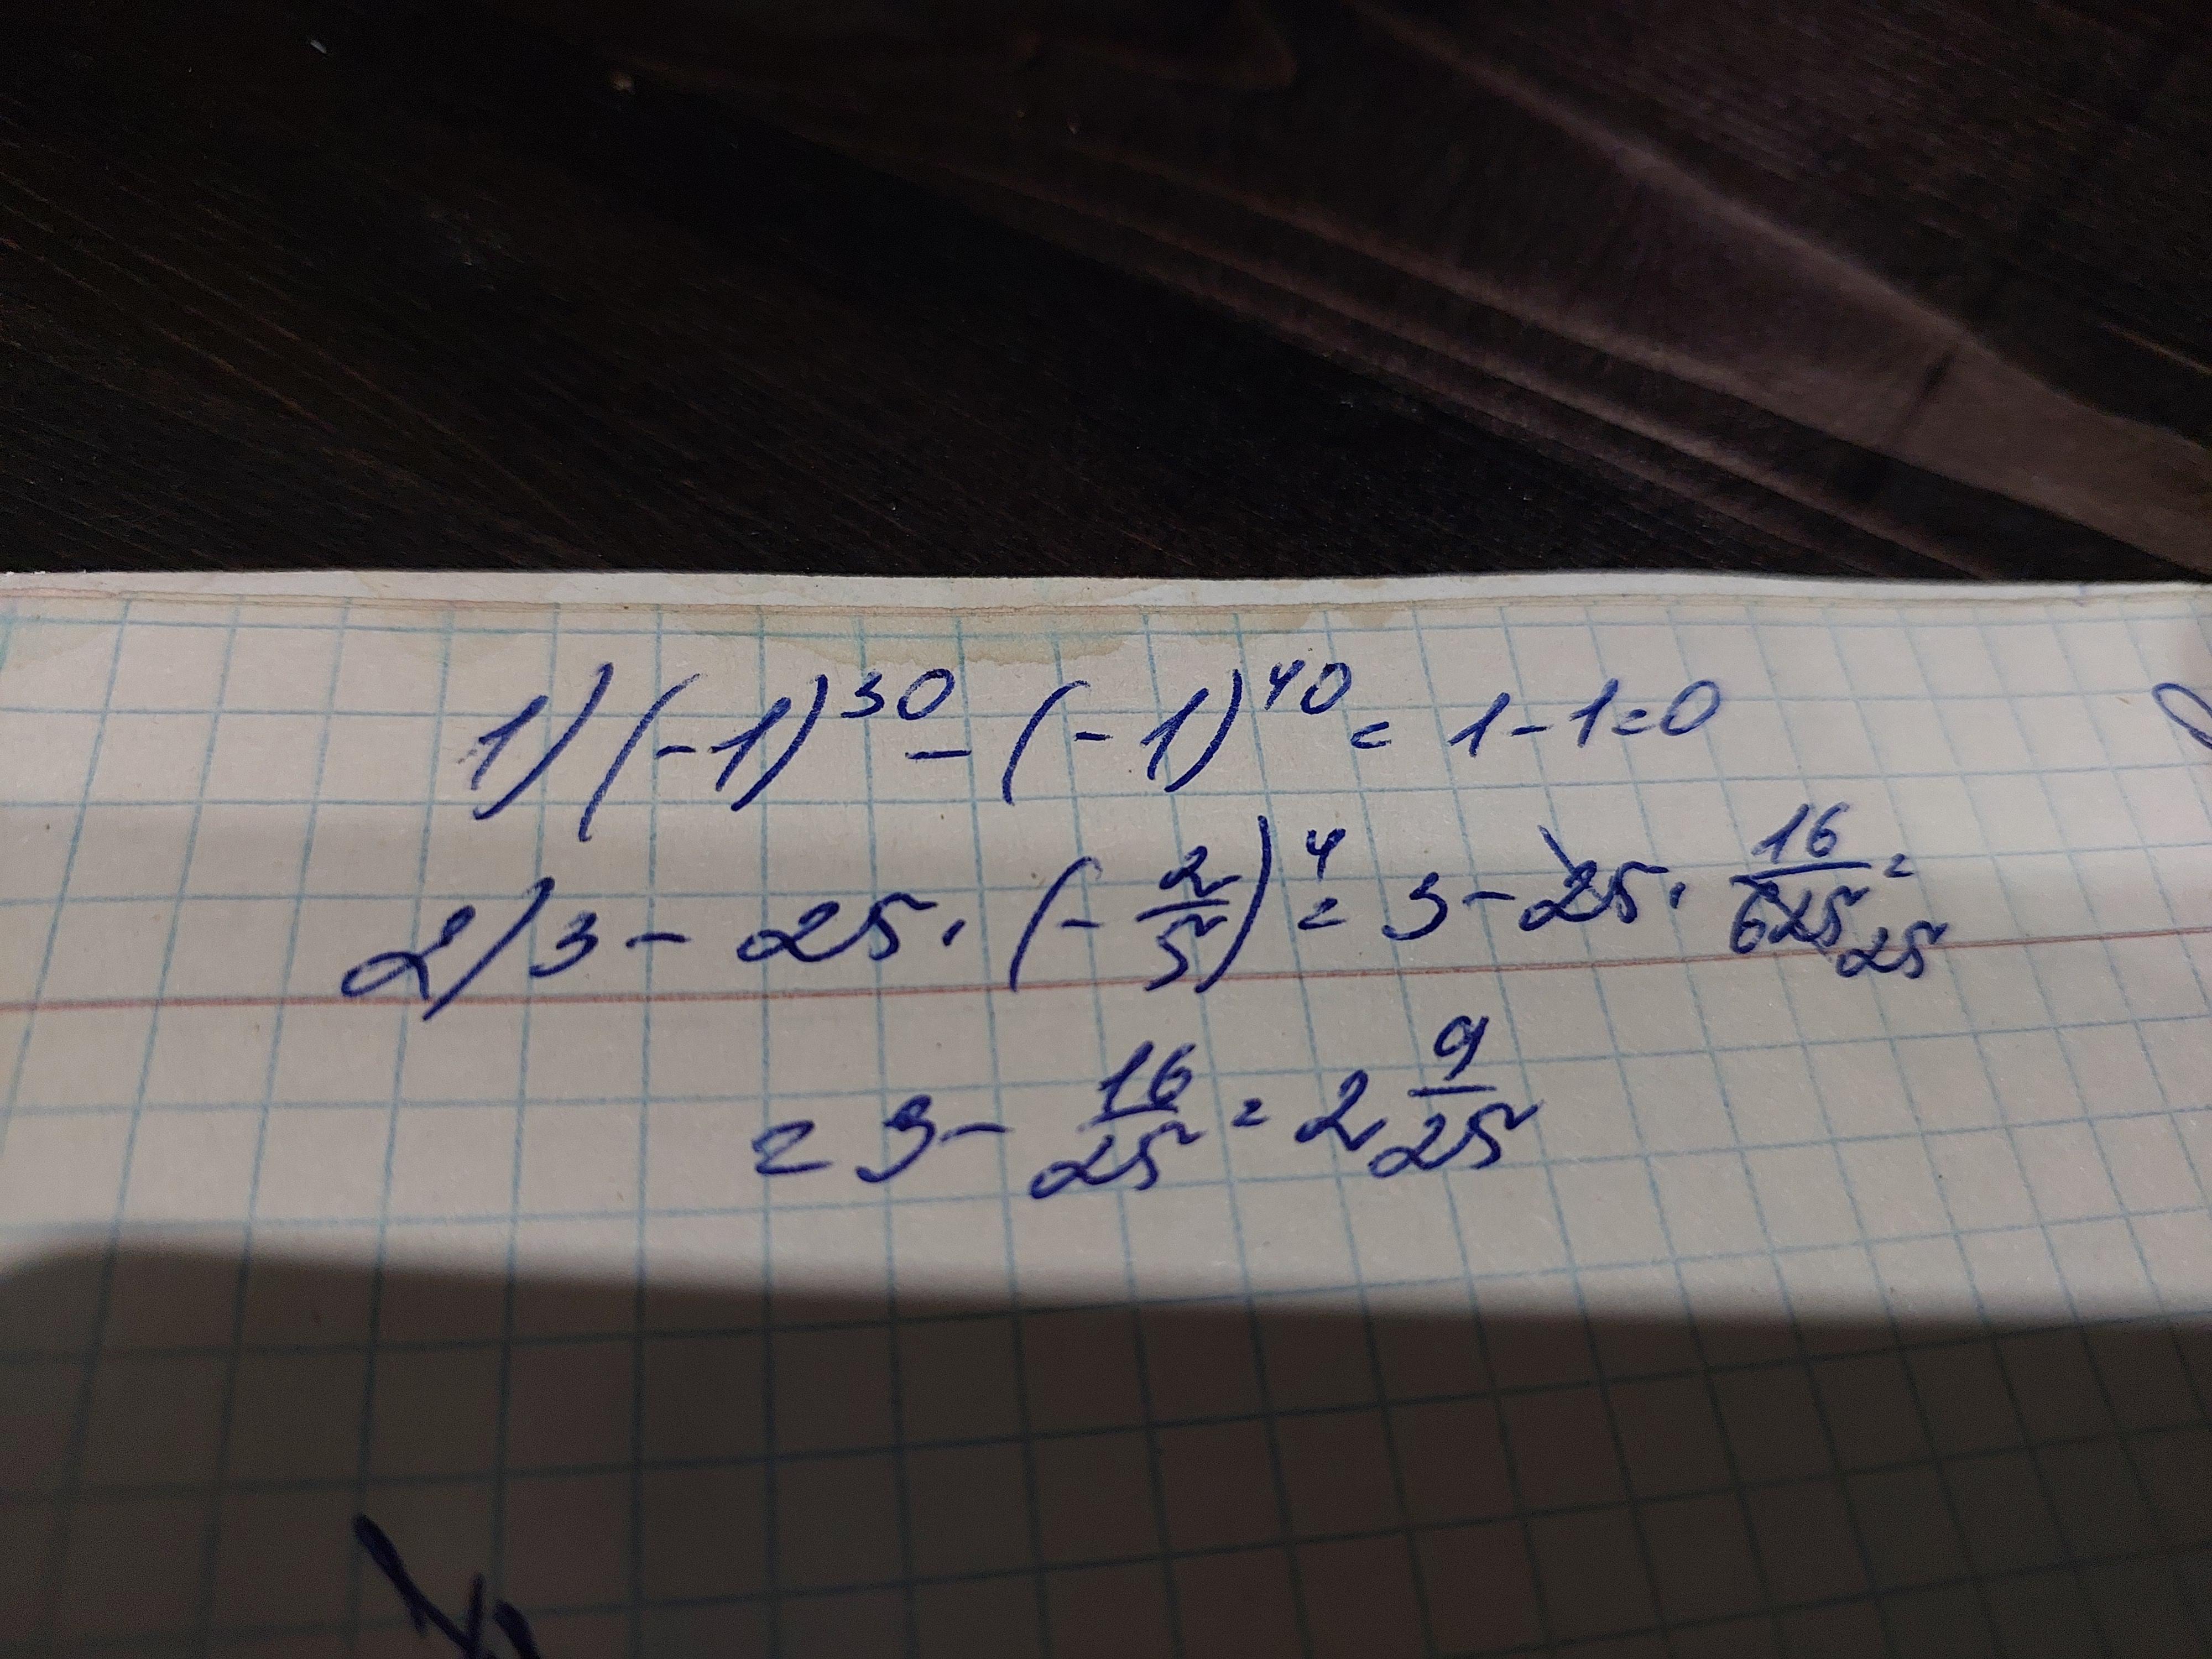 1) (-1)³⁰ - (-1)⁴⁰ = 1 - 1 = 0
2) 3 - 25 · (- 2/5)⁴ = 3 - 25 · 16/625 25 =
= 3 - 16/25 = 2 9/25